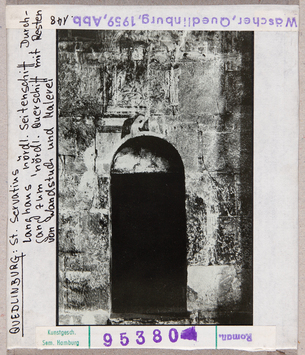 Wäscher, Quedlinburg, 1959, Abb. 148
QUEDLINBURG: St. Servatius
Langhaus nördl. Seitenschiff Durch-
gang zum nördl. Querschiff mit Resten
von Wandstuck und Malerei
Kunstgesch.
Sem. Hamburg
95380
Roman.